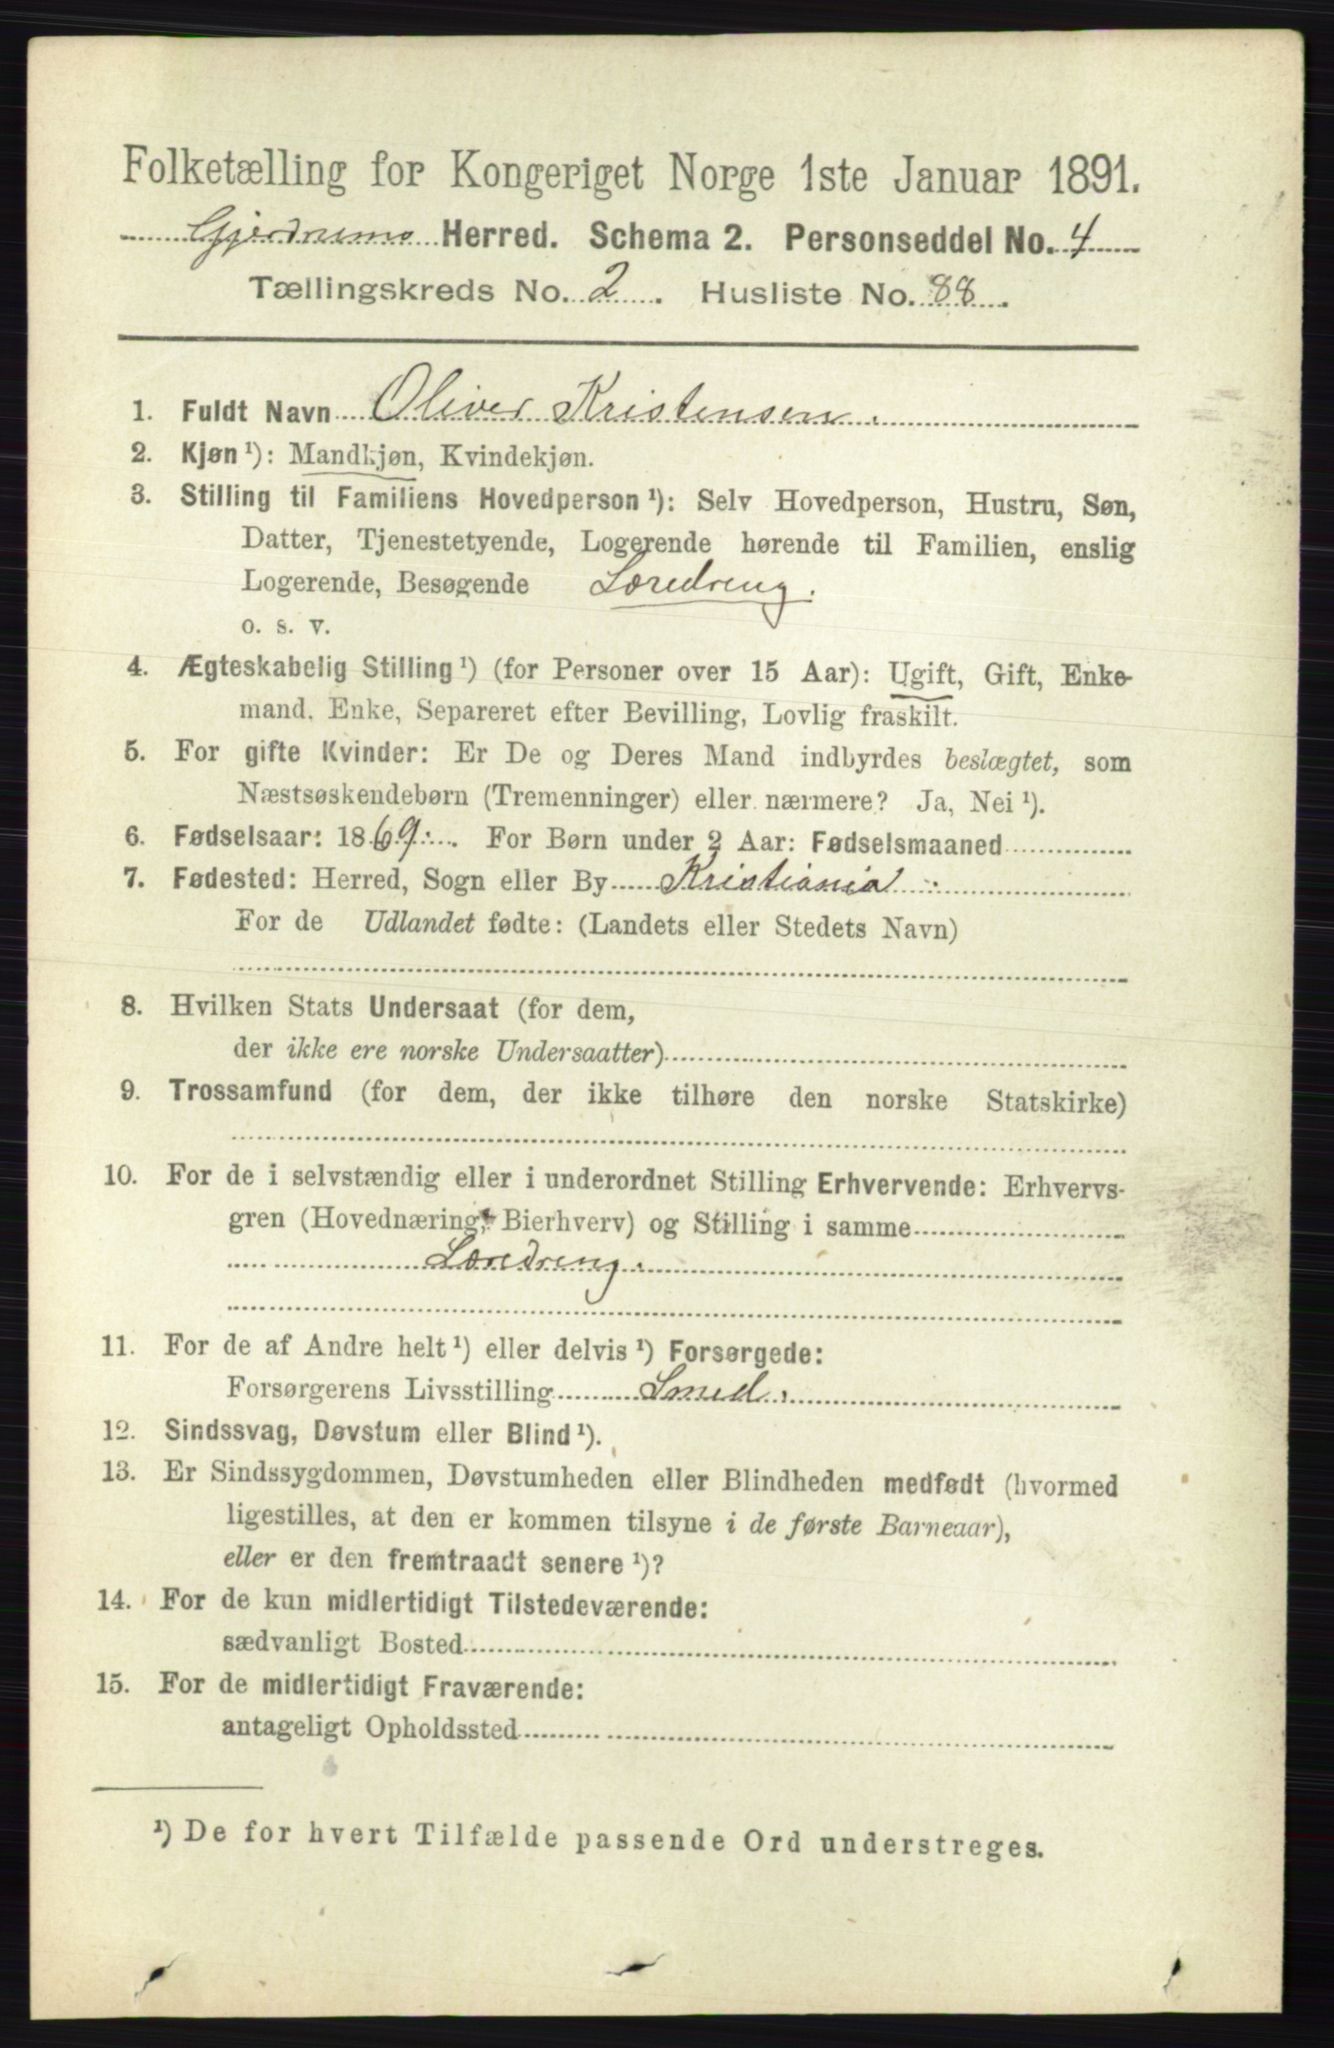 Folketælling for Kongeriget Norge 1ste Januar 1891.
Gjerdrums Herred. Schema 2. Personseddel No. 4
Tællingskreds No. 2. Husliste No. 88.
1. Fuldt Navn Oliver Kristensen.
2. Kjøn ¹): Mandkjøn, Kvindekjøn.
3. Stilling til Familiens Hovedperson ¹): Selv Hovedperson, Hustru, Søn,
Datter, Tjenestetyende, Logerende hørende til Familien, enslig
Logerende, Besøgende Læredreng.
o. s. v.
4. Ægteskabelig Stilling ¹) (for Personer over 15 Aar): Ugift, Gift, Enke-
mand, Enke, Separeret efter Bevilling, Lovlig fraskilt.
5. For gifte Kvinder: Er De og Deres Mand indbyrdes beslægtet, som
Næstsøskendebørn (Tremenninger) eller nærmere? Ja, Nei ¹).
6. Fødselsaar: 1869. For Børn under 2 Aar: Fødselsmaaned
7. Fødested: Herred, Sogn eller By Kristiania.
For de Udlandet fødte: (Landets eller Stedets Navn)
8. Hvilken Stats Undersaat (for dem,
der ikke ere norske Undersaatter)
9. Trossamfund (for dem, der ikke tilhøre den norske Statskirke)
10. For de i selvstændig eller i underordnet Stilling Erhvervende: Erhvervs-
gren (Hovednæring, Bierhverv) og Stilling i samme
Læredreng.
11. For de af Andre helt ¹) eller delvis ¹) Forsørgede:
Forsørgerens Livsstilling Smed.
12. Sindssvag, Døvstum eller Blind ¹).
13. Er Sindssygdommen, Døvstumheden eller Blindheden medfødt (hvormed
ligestilles, at den er kommen tilsyne i de første Barneaar),
eller er den fremtraadt senere ¹)?
14. For de kun midlertidigt Tilstedeværende:
sædvanligt Bosted
15. For de midlertidigt Fraværende:
antageligt Opholdssted
¹) De for hvert Tilfælde passende Ord understreges.